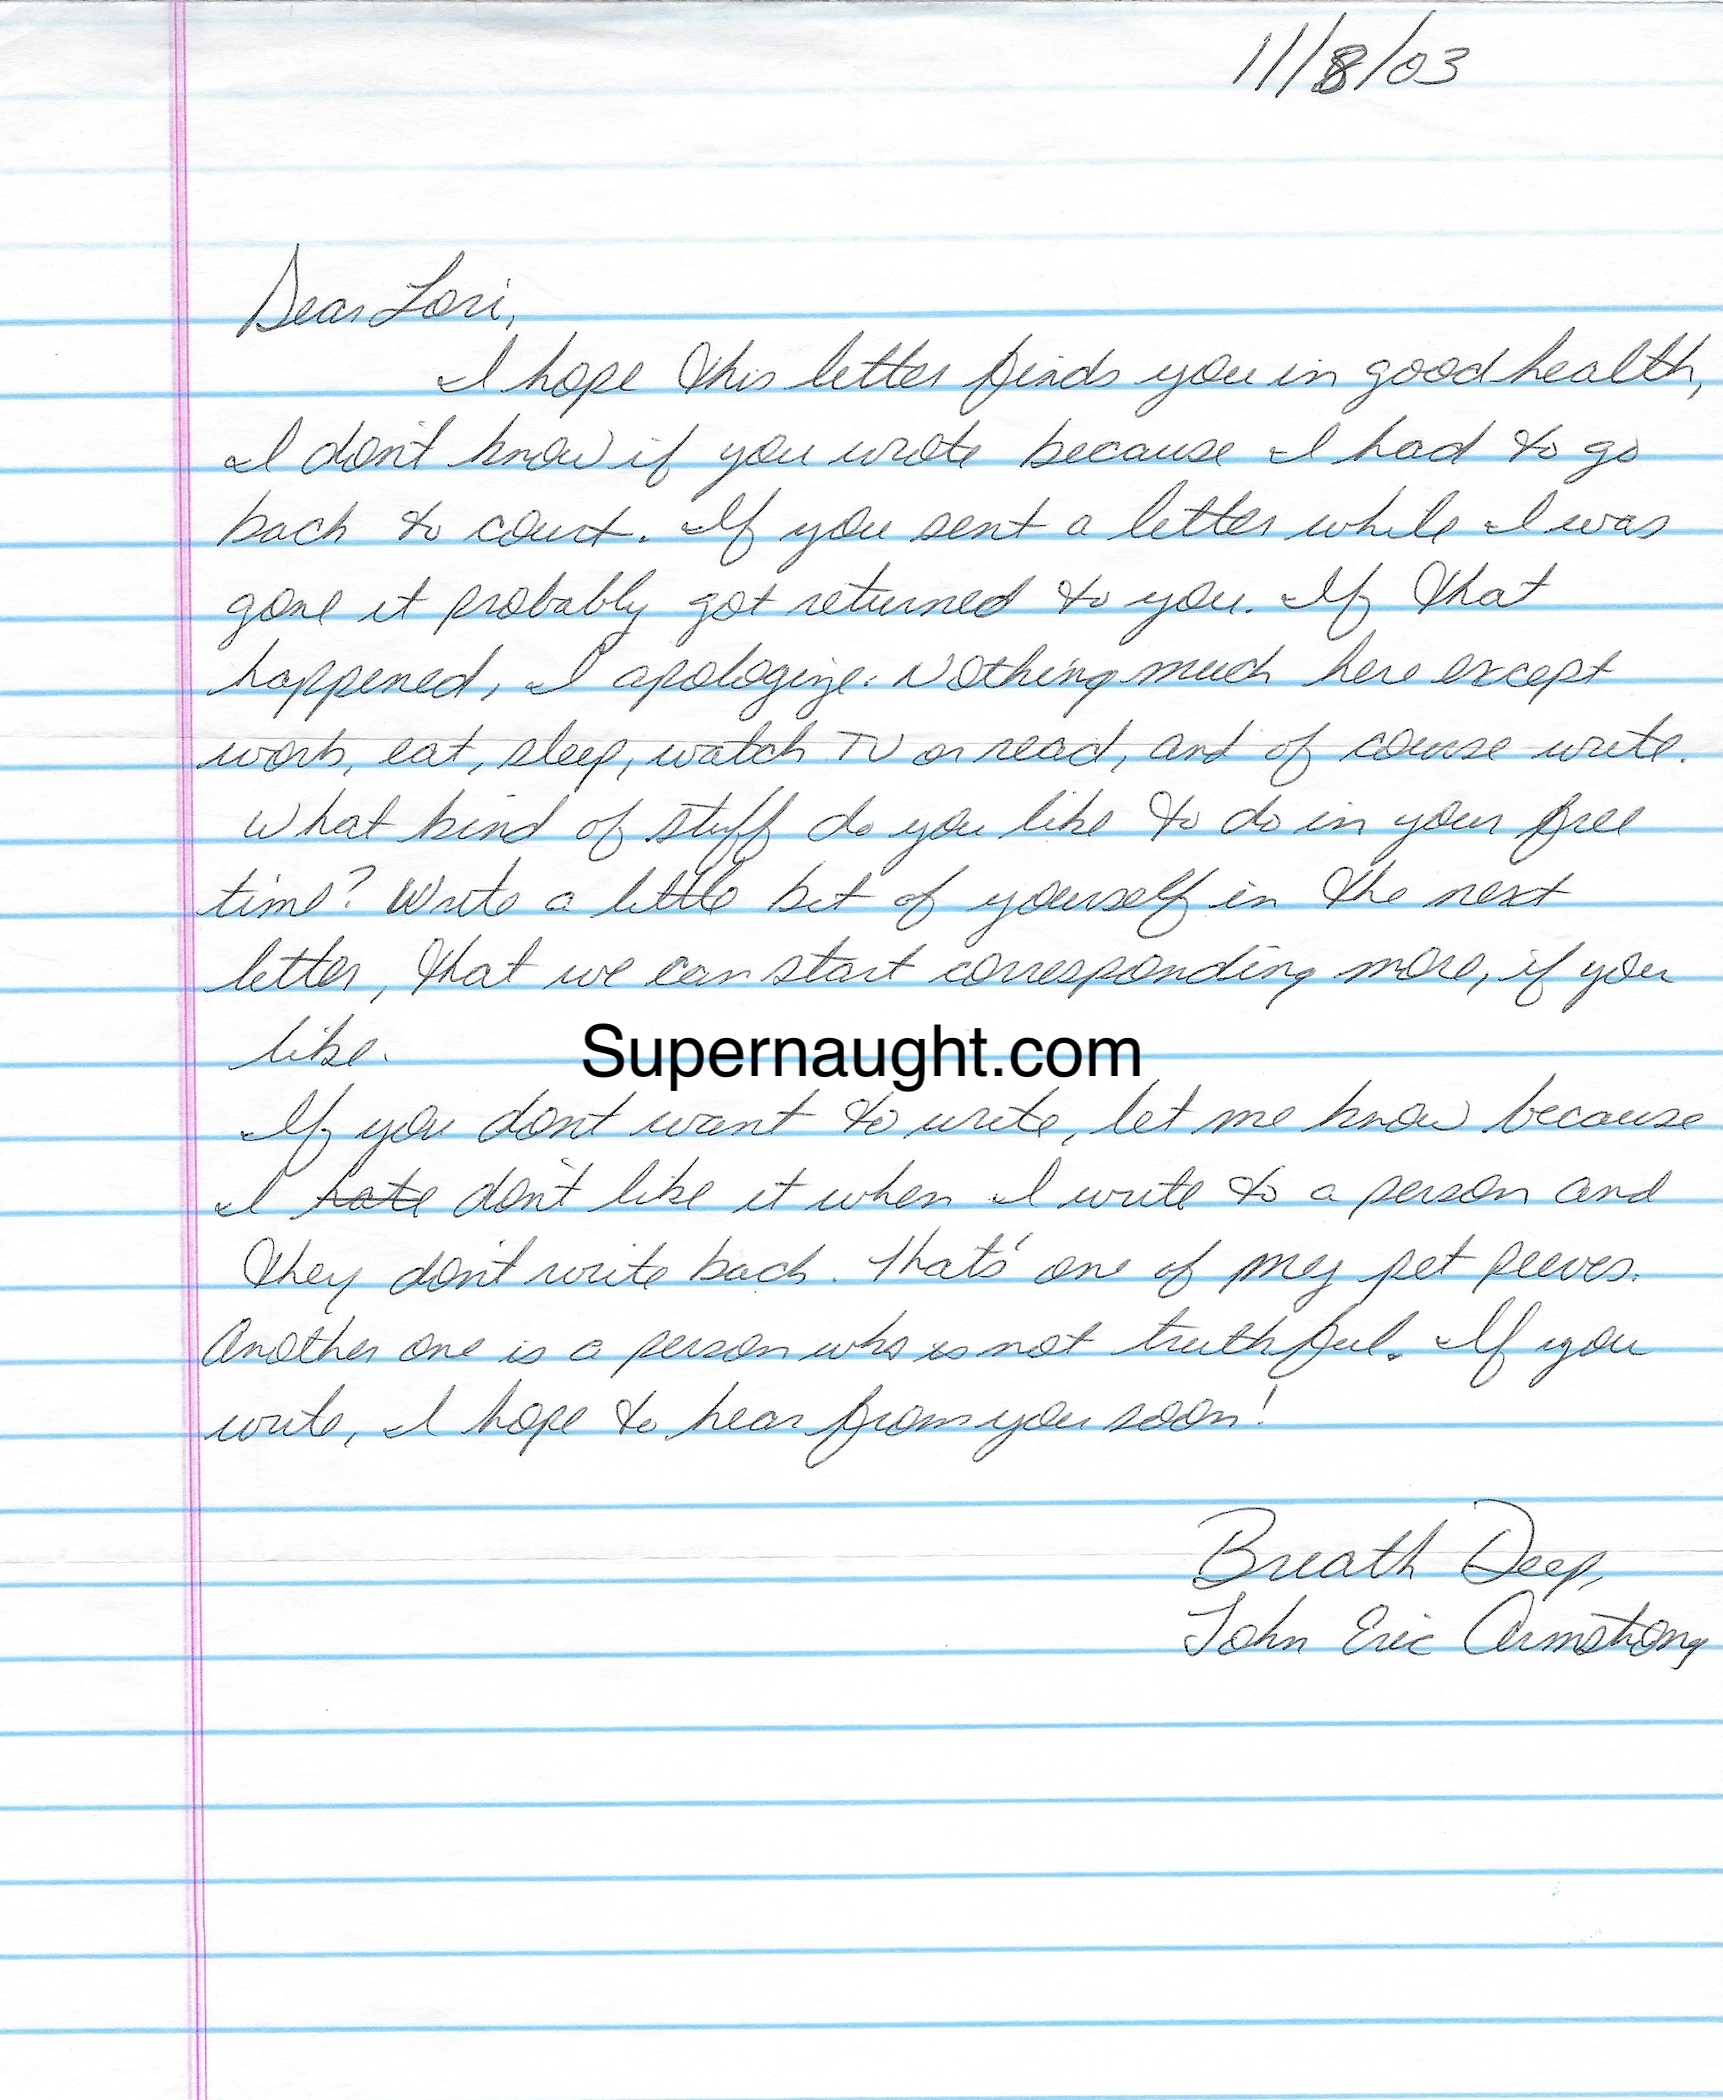 11/8/03
Dear Lori,
I hope this letter finds you in good health,
I don't know if you wrote because I had to go
back to court. If you sent a letter while I was
gone it probably got returned to you. If that
happened, I apologize. Nothing much here except
work, eat, sleep, watch TV or read, and of course write.
What kind of stuff do you like to do in your free
time? Write a little bit of yourself in the next
letter, that we can start corresponding more, if you
like.
Supernaught.com
If you dont want to write, let me know because
I hate don't like it when I write to a person and
they don't write back. That's one of my pet peeves.
Another one is a person who is not truthful. If you
write, I hope to hear from you soon!
Breath Deep,
John Eric Armstrong